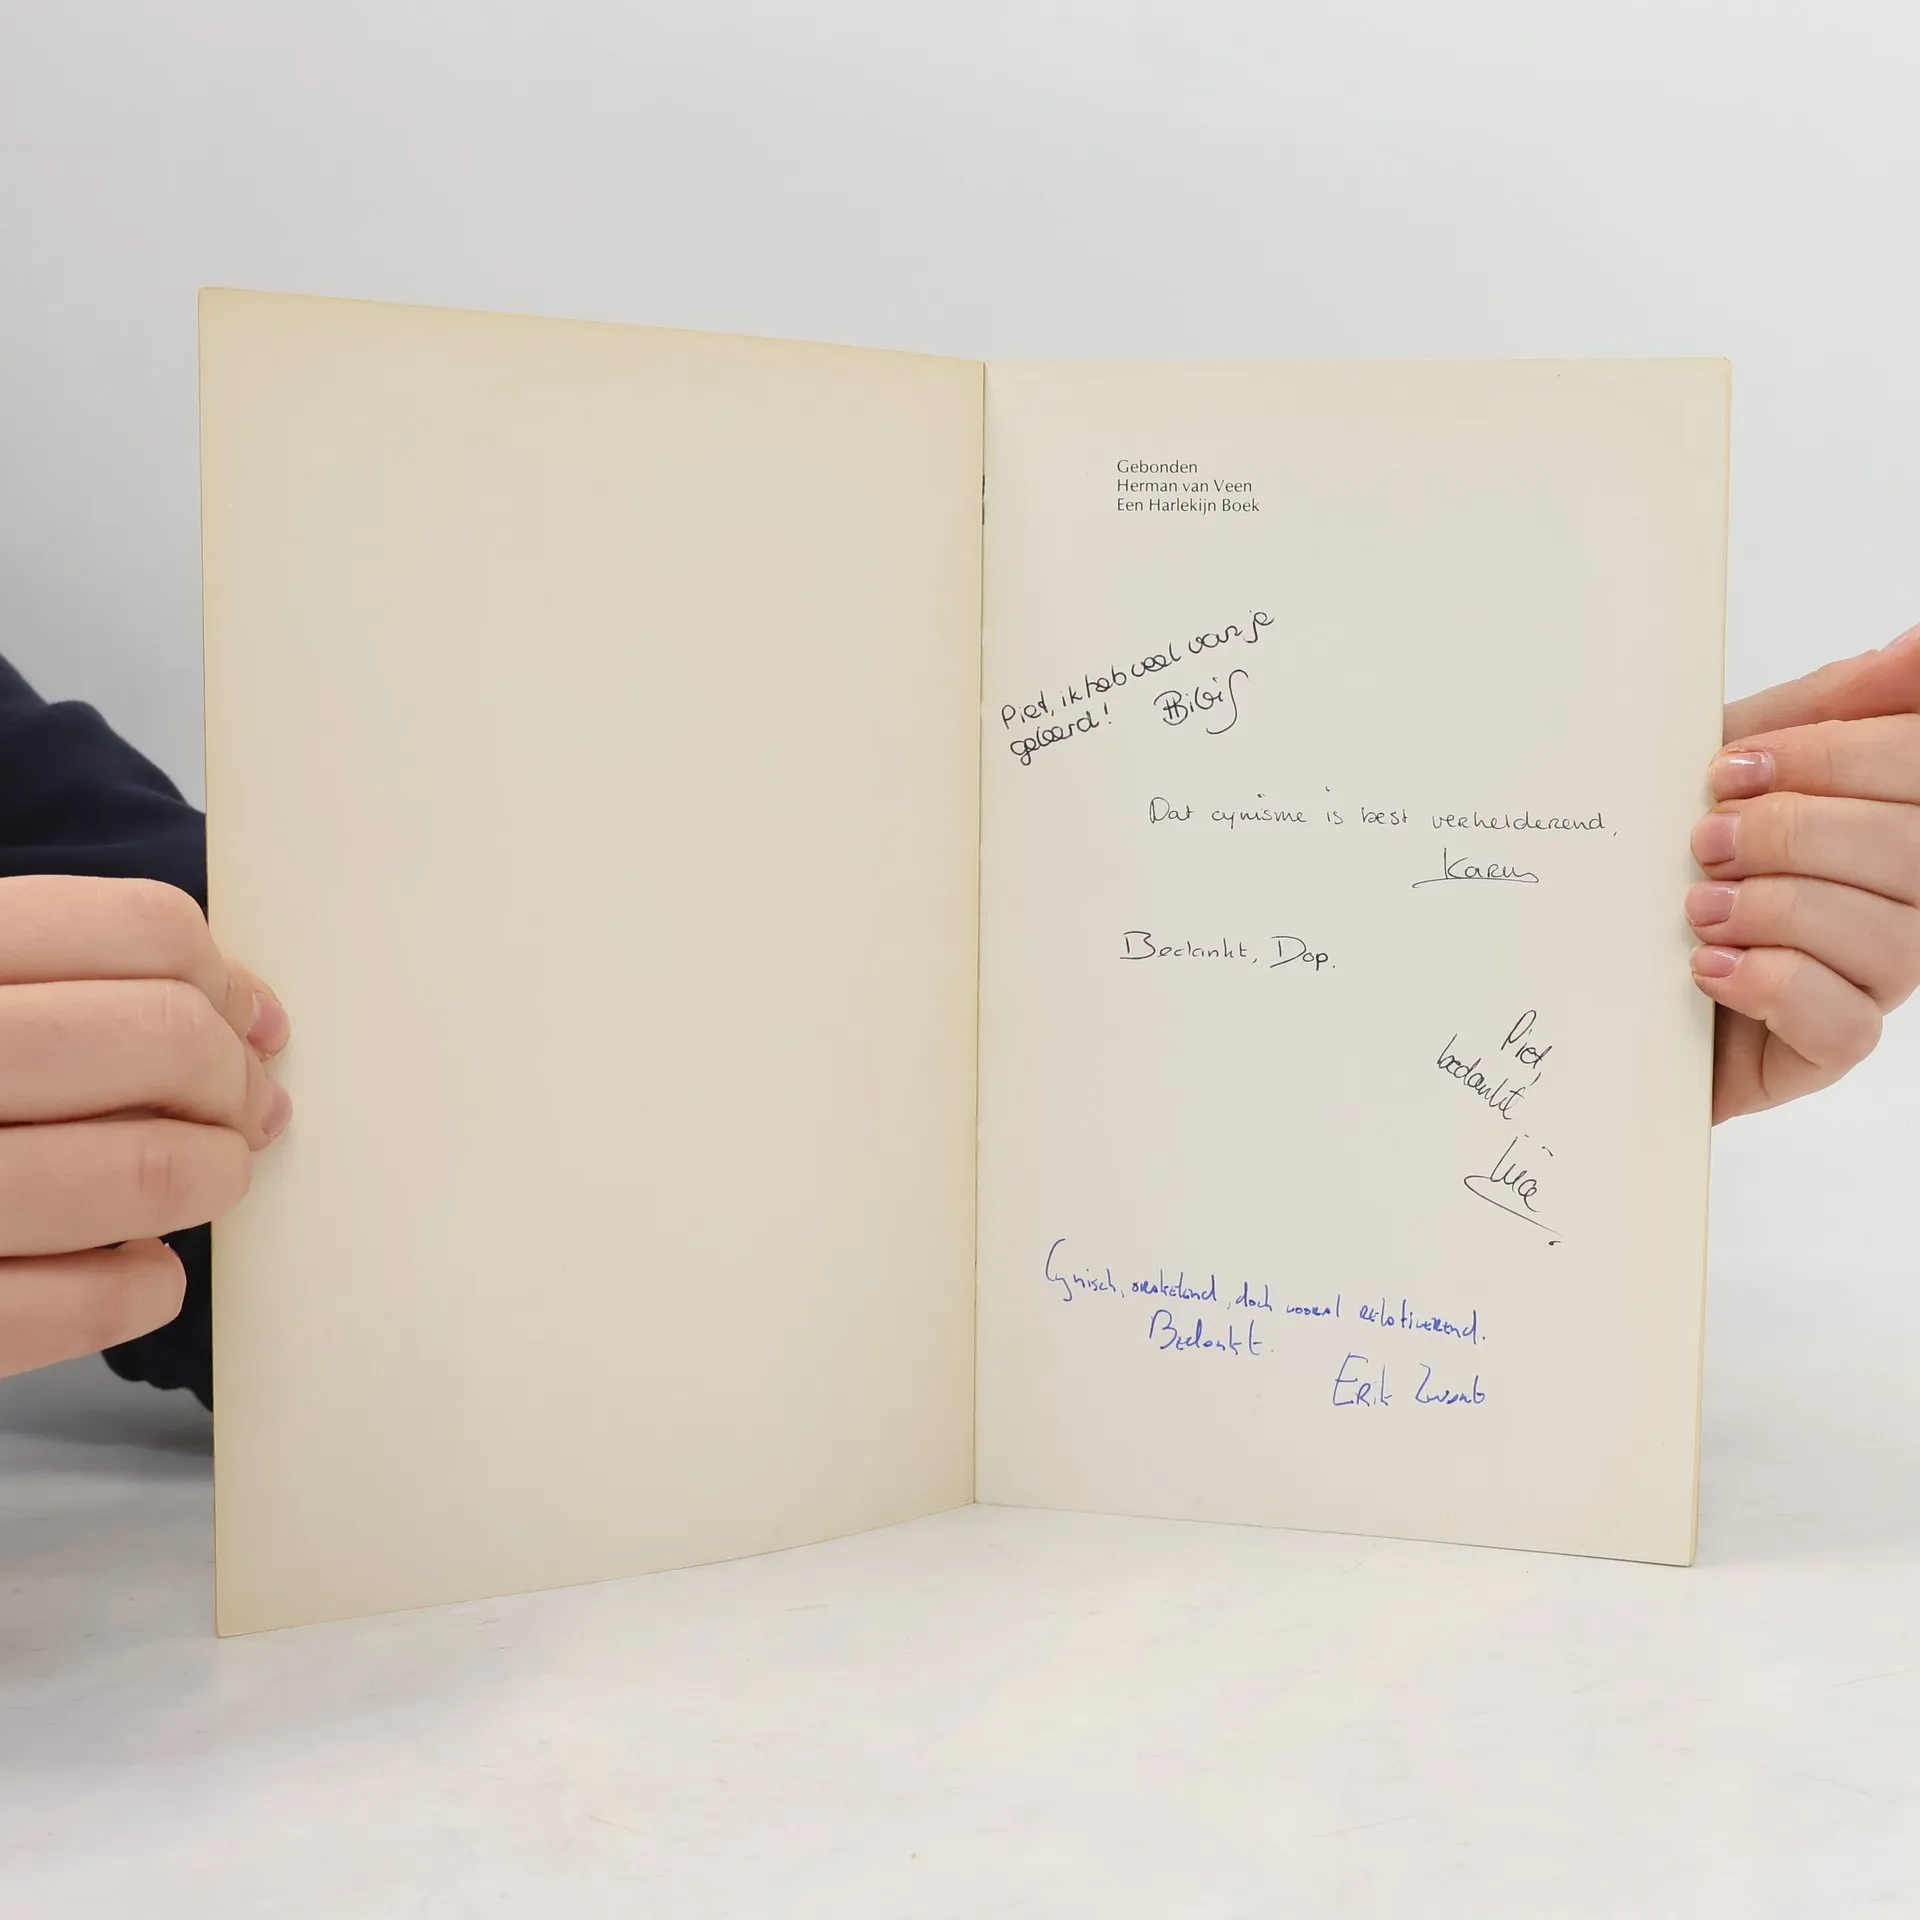 Gebonden
Herman van Veen
Een Harlekijn Boek
Piet, ik heb veel van je
geleerd! Bibi
Dat cynisme is best verhelderend,
Karin
Bedankt, Dop.
Piet,
bedankt
Cynisch, orakelend, doch vooral relativerend.
Bedankt.
Erik